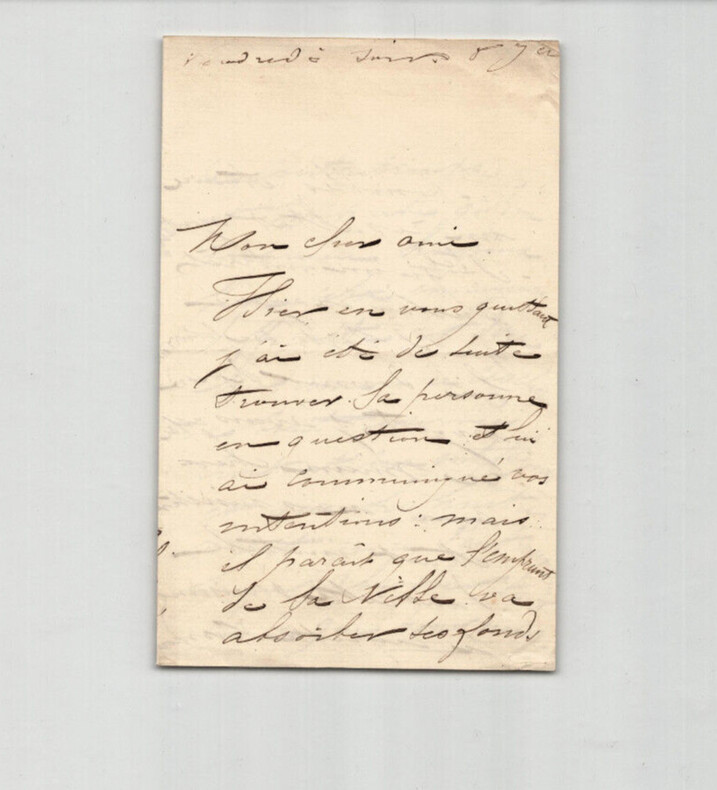 Vendredi soir 8
Mon cher ami
Hier en vous quittant
j'ai été de suite
trouver la personne
en question et lui
ai communiqué vos
intentions : mais
il paraît que l'emprunt
de la Ville va
absorber ses fonds